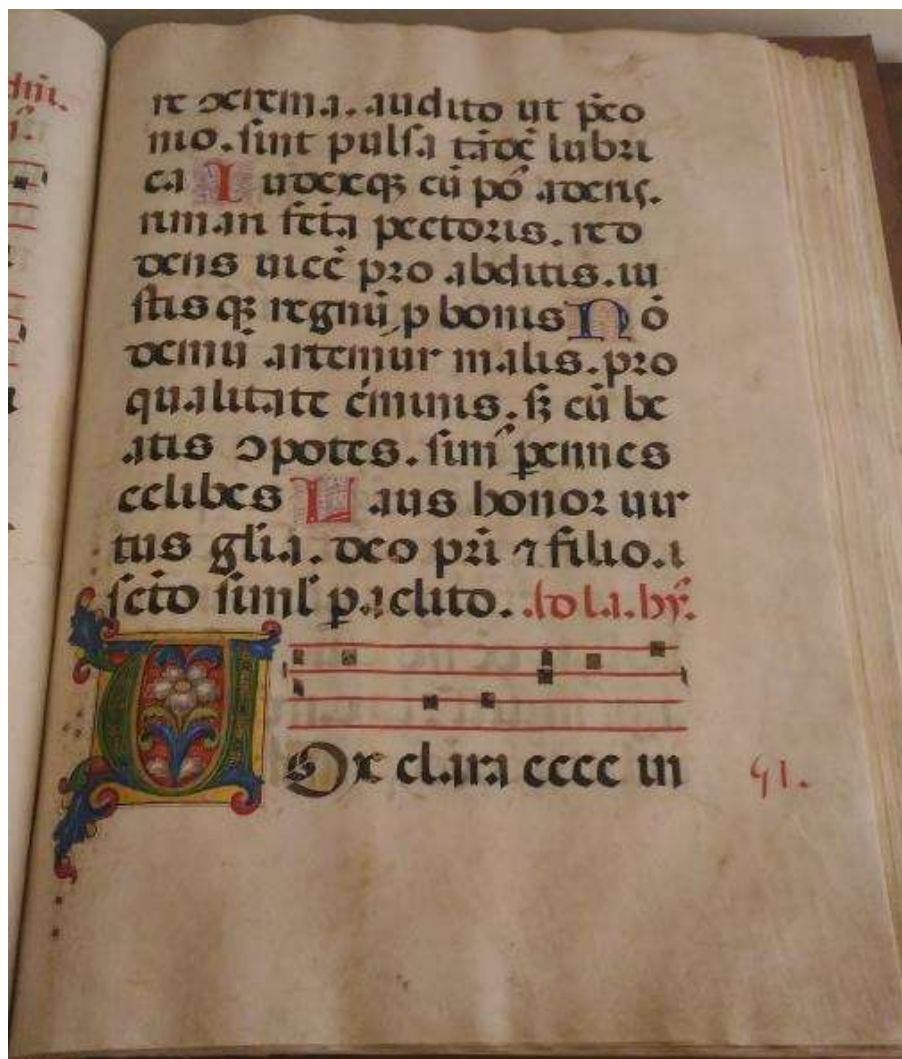 re ɔcrema. audito ut p̄co
nio. sint pulsa tādē lubri
ca Iudexqꝫ cū pō aderis.
rimari fc̄ta pectoris. red
dens uicē pro abditis. iu
stis qꝫ regnū p bonis Nō
demū artemur malis. pro
qualitate c̄minis. sꝫ cū be
atis ɔpotes. sim᷒ ꝑennes
celibes Laus honor uir
tus gl̄ia. deo pr̄i ⁊ filio. i
sc̄to siml̄ ꝑaclito. .lo l.a. hy̅.
Vox clara cccc in
91.